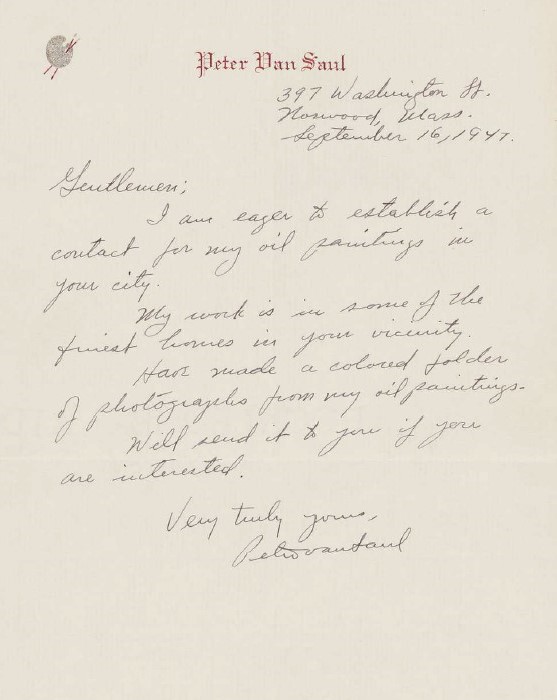 Peter Van Saul
397 Washington St.
Norwood, Mass.
September 16, 1947.
Gentlemen;
I am eager to establish a
contact for my oil paintings in
your city.
My work is in some of the
finest homes in your vicinity.
Have made a colored folder
of photographs from my oil paintings.
Will send it to you if you
are interested.
Very truly yours,
Peter van Saul